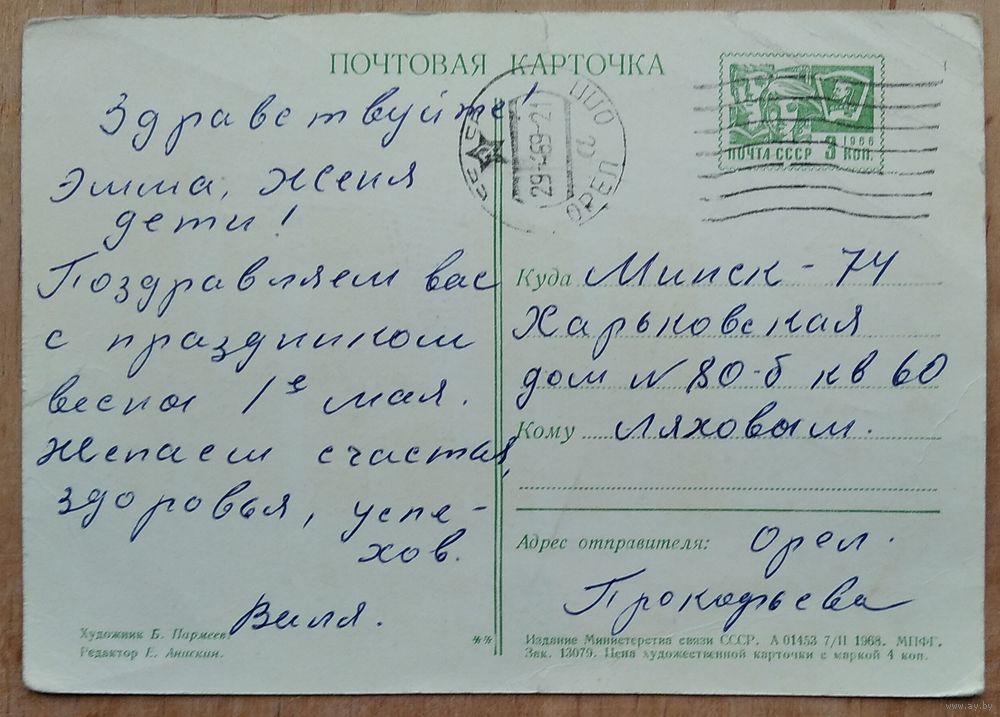 ПОЧТОВАЯ КАРТОЧКА
Здравствуйте!
Эмма, Женя
дети!
Поздравляем вас
с праздником
весны 1е мая.
Желаем счастья,
здоровья, успе-
хов.
Виля.
Художник Б. Пармеев
Редактор Е. Анискин.
ОРЕЛ
29-4-69-21
1966
ПОЧТА СССР 3 КОП.
Куда Минск - 74
Харьковская
дом № 80-б кв 60
Кому Ляховым.
Адрес отправителя: Орел.
Прокофьева
Издание Министерства связи СССР. А 01453 7/II 1968. МПФГ.
Зак. 13079. Цена художественной карточки с маркой 4 коп.
www.ay.by